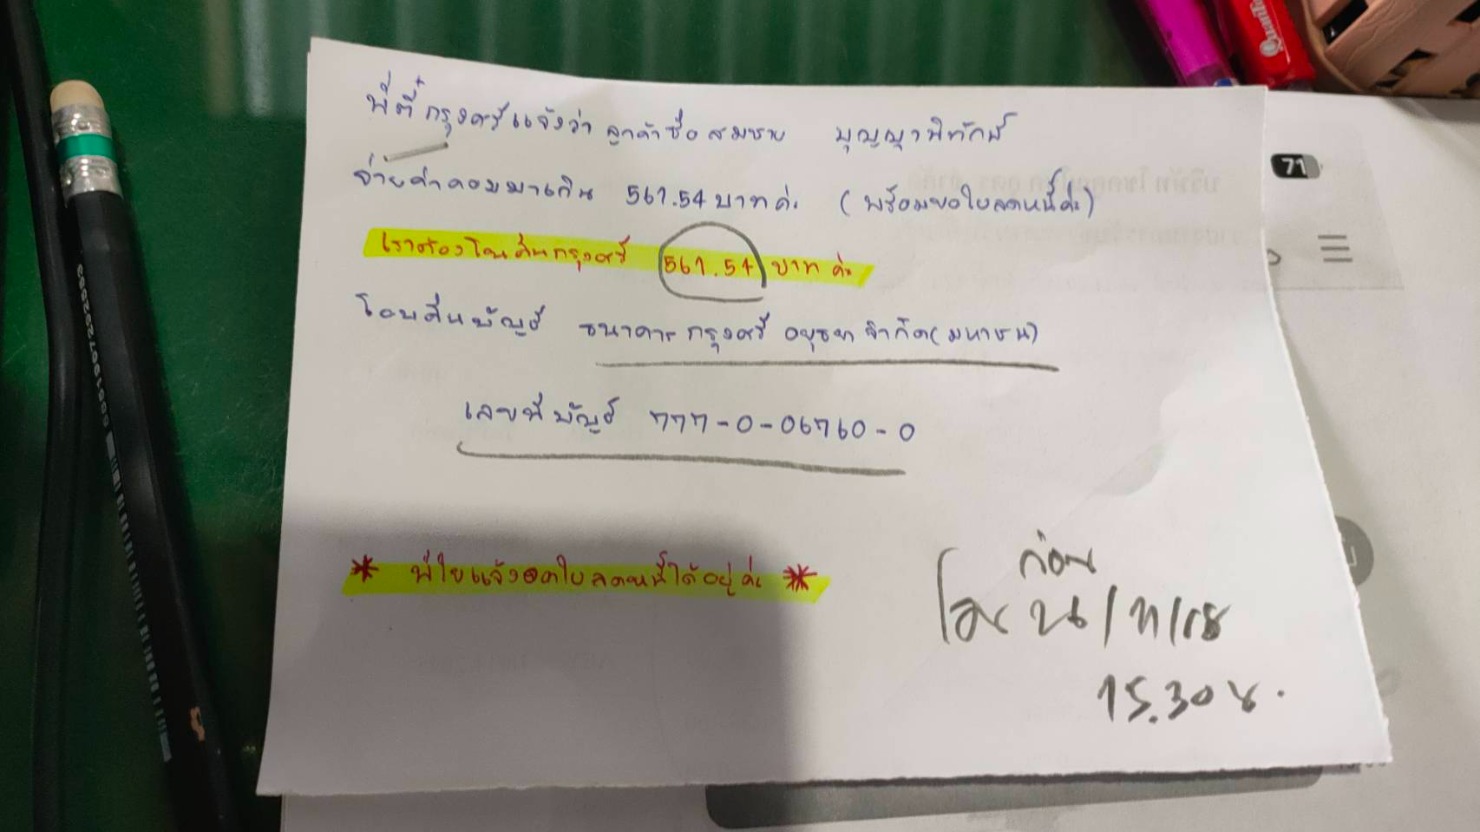 พี่ตี๋กรุงศรีแจ้งว่า ลูกค้าชื่อ สมชาย บุญญาพิทักษ์
จ่ายค่าคอมมาเกิน 561.54 บาทค่ะ (พร้อมขอใบลดหนี้ค่ะ)
เราต้องโอนคืนกรุงศรี 561.54 บาท ค่ะ
โอนคืนบัญชี ธนาคาร กรุงศรี อยุธยา จำกัด(มหาชน)
เลขที่บัญชี 777-0-06760-0
* พี่ใยแจ้งออกใบลดหนี้ได้อยู่ค่ะ *
ก่อน
15.30 น.
71